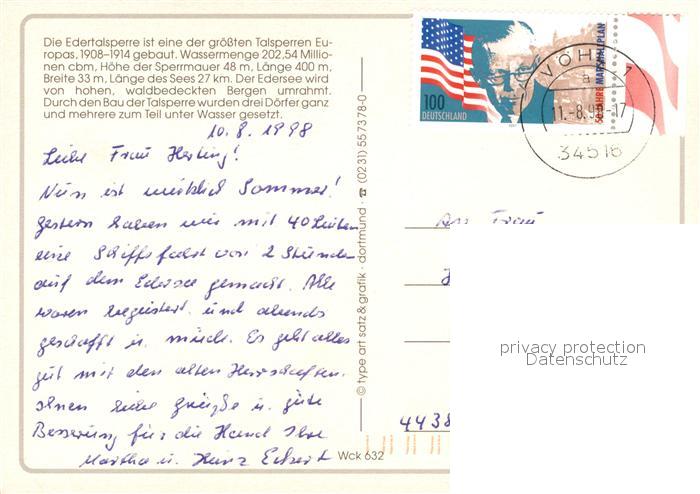 Die Edertalsperre ist eine der größten Talsperren Eu-
ropas, 1908-1914 gebaut. Wassermenge 202,54 Millio-
nen cbm, Höhe der Sperrmauer 48 m, Länge 400 m,
Breite 33 m, Länge des Sees 27 km. Der Edersee wird
von hohen, waldbedeckten Bergen umrahmt.
Durch den Bau der Talsperre wurden drei Dörfer ganz
und mehrere zum Teil unter Wasser gesetzt.
10.8.1998
Liebe Frau Herting!
Nun ist wirklich Sommer!
Gestern haben wir mit 40 Leuten
eine Schiffsfahrt von 2 Stunden
auf dem Edersee gemacht. Alle
waren begeistert und abends
geschafft u. müde. Es geht alles
gut mit den alten Herrschaften.
Ihnen liebe Grüße u. gute
Besserung für die Hand Ihre
Martha u. Heinz Eckert
© type art satz & grafik · dortmund · ☎ (0231) 557378-0
Wck 632
100
DEUTSCHLAND
50 JAHRE MARSHALLPLAN
VÖHL 1
a
11.-8.98-17
34516
An Frau
4438
privacy protection
Datenschutz